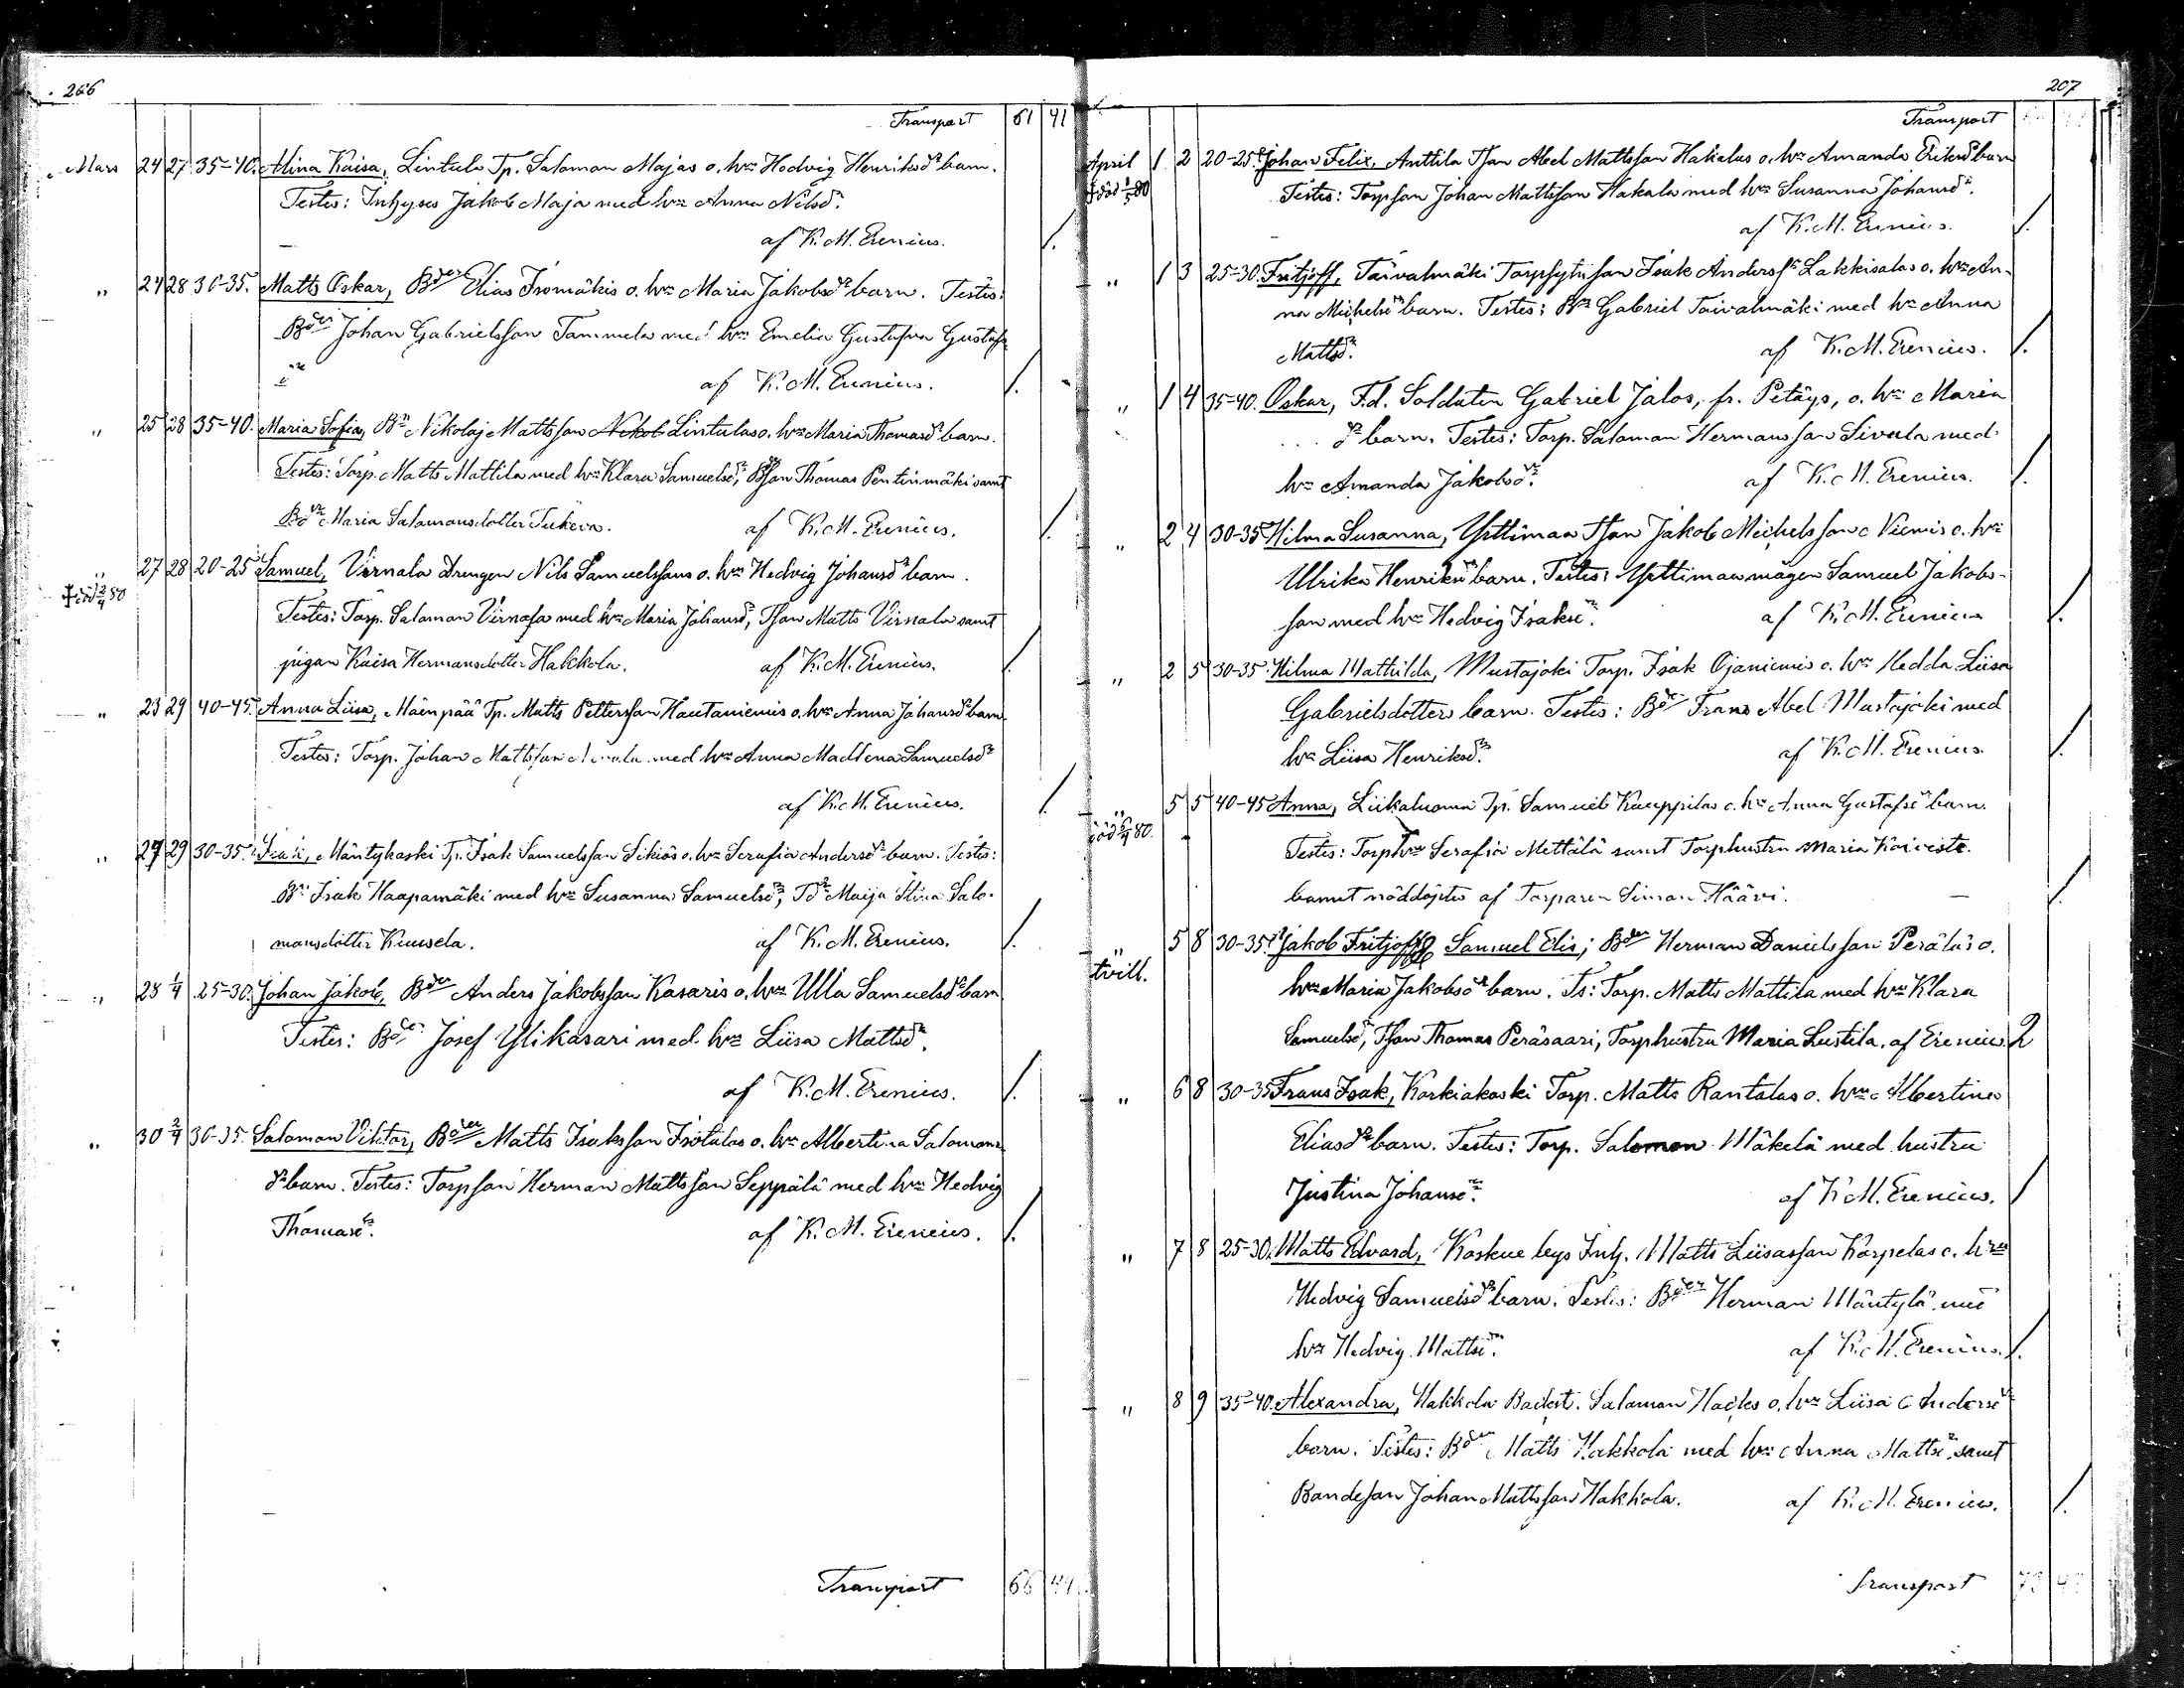 266
Transport 61 41
Mars 24 27 35-40. Alina Kaisa, Lintula Tp. Salomon Majas o. hrs Hedvig Henriksdr barn.
Testes: Inhyses Jakob Maja med hru Anna Nilsdr.
af K. M. Erenius. /.
" 24 28 30-35. Matts Oskar, Bden Elias Isomäkis o. hrs Maria Jakobsdr barn. Testes:
Bden Johan Gabrielsson Tammela med hru Emelia Gustafva Gustafs
dr af K. M. Erenius. /.
" 25 28 35-40. Maria Sofia, Bdn Nikolaj Mattsson Lintulas o. hrs Maria Thomasdr barn.
Testes: Torp. Matts Mattila med hru Klara Samuelsdr, Bson Thomas Pentinmäki samt
Bdr Maria Salomonsdotter Tukeva. af K. M. Erenius. /
" 27 28 20-25 Samuel, Virnala Drengen Nils Samuelssons o. hrs Hedvig Johansdr barn.
† död 2/4 80
Testes: Torp. Salomon Virnala med hru Maria Johansdr, Tson Matts Virnala samt
pigan Kaisa Hermansdotter Hakkola. af K. M. Erenius. /
" 23 29 40-45. Anna Liisa, Mäenpää Tp. Matts Pettersson Hautaniemis o. hrs Anna Johansdr barn.
Testes: Torp. Johan Mattsson med hru Anna Madlena Samuelsdr
af K. M. Erenius. /
" 27 29 30-35. Mäntykoski Tp. Isak Samuelsson Sikiös o. hrs Serafia Andersdr barn. Testes:
Bn Isak Haapamäki med hru Susanna Samuelsdr, Tdr Maija Stina Salo-
monsdotter Kuusela. af K. M. Erenius. /.
" 28 1/4 25-30. Johan Jakob, Bden Anders Jakobsson Kasaris o. hrs Ulla Samuelsdr barn
Testes: Bden Josef Ylikasari med hru Liisa Mattsdr.
af K. M. Erenius. /.
" 30 2/4 30-35. Salomon Viktor, Bden Matts Isaksson Isotalos o. hrs Albertina Salomons
dr barn. Testes: Torpson Herman Mattsson Seppälä med hru Hedvig
Thomasdr. af K. M. Erenius. /.
Transport 66 44
207
Transport
April 1 2 20-25. Johan Felix, Anttila Tson Abel Mattsson Hakalas o. hrs Amanda Eriksdr barn
† död 80
Testes: Torpson Johan Mattsson Hakala med hru Susanna Johansdr.
af K. M. Erenius. /.
" 1 3 25-30. Fritjoff, Taivalmäki Torpsytn son Isak Anderss Lakkisalos o. hrs An-
na Michelsdr barn. Testes: Bdn Gabriel Taivalmäki med hru Anna
Mattsdr. af K. M. Erenius. /.
" 1 4 35-40. Oskar, F.d. Soldaten Gabriel Jalos, fr. Petäys, o. hrs Maria
... dr barn. Testes: Torp. Salomon Hermansson Sivula med
hru Amanda Jakobsdr. af K. M. Erenius. /.
" 2 4 30-35 Hilma Susanna, Yttimaa Tson Jakob Michelsson Niemis o. hrs
Ulrika Henriksdr barn. Testes: Yttimaa mågen Samuel Jakobs-
son med hru Hedvig Isaksdr. af K. M. Erenius /.
" 2 5 30-35. Hilma Mathilda, Mustajoki Torp. Isak Ojaniemis o. hrs Hedda Liisa
Gabrielsdotters barn. Testes: Bden Frans Abel Mustajoki med
hru Liisa Henriksdr. af K. M. Erenius. /.
" 5 5 40-45 Anna, Liikaluoma Tp. Samuel Kauppilas o. hrs Anna Gustafsdr barn.
död 5/4 80.
Testes: Torphru Serafia Mettälä samt Torphustru Maria Koivisto.
barnet nöddöptes af Torparen Simon Hääri. — /.
" 5 8 30-35. Jakob Fritjoff & Samuel Elis; Bden Herman Danielsson Peräläs o.
tvill.
hrs Maria Jakobsdr barn. Ts: Torp. Matts Mattila med hru Klara
Samuelsdr, Tson Thomas Peräsaari, Torphustru Maria Lustila. af Erenius 2
" 6 8 30-35 Frans Isak, Korkiakoski Torp. Matts Rantalas o. hrs Albertina
Eliasdr barn. Testes: Torp. Salomon Mäkelä med hustru
Justina Johansdr. af K. M. Erenius. /
" 7 8 25-30. Matts Edvard, Koskue bys Inh. Matts Liisasson Korpelas o. hrs
Hedvig Samuelsdr barn. Testes: Bden Herman Mäntylä med
hru Hedvig Mattsdr. af K. M. Erenius. /.
" 8 9 35-40. Alexandra, Hakkola Backst. Salomon Hackes o. hrs Liisa Andersdr
barn. Testes: Bden Matts Hakkola med hru Anna Mattsdr samt
Bondeson Johan Mattsson Hakkola. af K. M. Erenius. /.
Transport